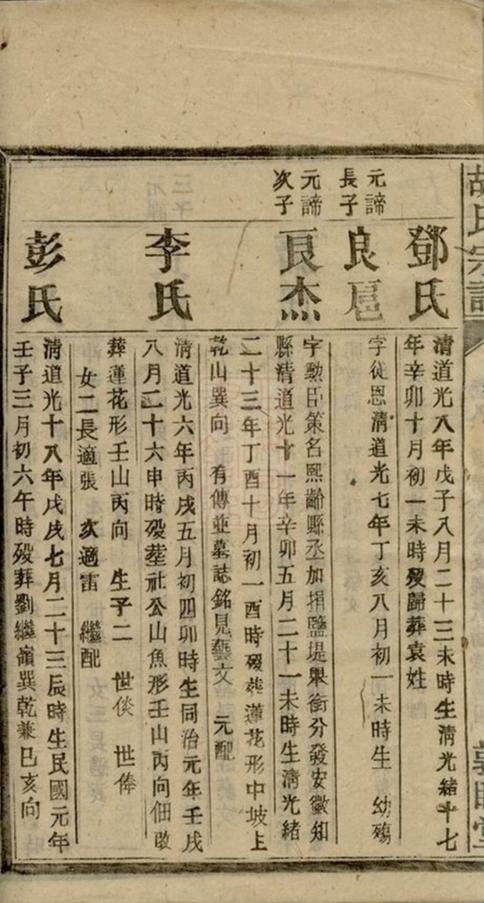 胡氏宗譜
鄧氏
清道光八年戊子八月二十三未時生清光緒十七
年辛卯十月初一未時歿歸葬袁姓
元諦
長子
良扈
字從恩清道光七年丁亥八月初一未時生　幼殤
元諦
次子
良杰
字勳臣策名熙齡縣丞加捐鹽堤舉銜分發安徽知
縣清道光十一年辛卯五月二十一未時生清光緒
二十三年丁酉十月初一酉時歿葬蓮花形中坡上
乾山巽向　有傳並墓誌銘見藝文　元配
李氏
清道光六年丙戌五月初四卯時生同治元年壬戌
八月二十六申時歿塟社公山魚形壬山丙向佃改
葬蓮花形壬山丙向　生子二　世倓　世俸
女二長適張　次適雷　繼配
彭氏
清道光十八年戊戌七月二十三辰時生民國元年
壬子三月初六午時歿葬劉繼嶺巽乾兼巳亥向